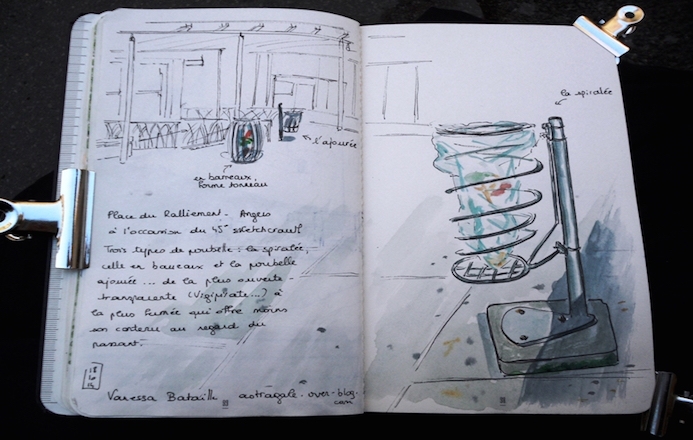 la spiralée
l'ajourée
en barreaux,
forme tonneau
Place du Ralliement - Angers
à l'occasion du 45e sketchcrawl
Trois types de poubelle : la spiralée,
celle en barreaux et la poubelle
ajourée ... de la plus ouverte
transparente (Vigipirate...) à
la plus fermée qui offre moins
son contenu au regard du
passant.
18
Vanessa Bataille astragale.over-blog.
com